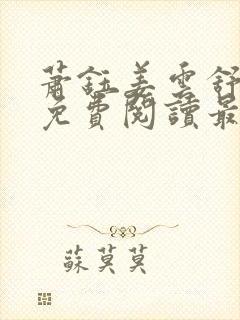 蕭鈺姜雲舒
免費閱讀最
蘇莫莫